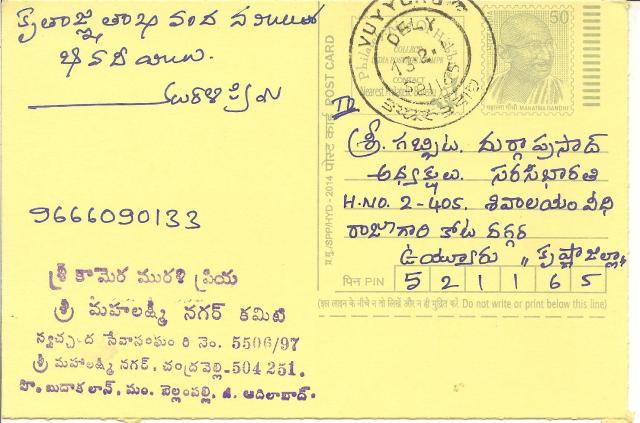 కృతజ్ఞతాభివందనములతో
భవదీయుడు.
మురళీప్రియ
9666090133
శ్రీ కామెర మురళి ప్రియ
శ్రీ మహాలక్ష్మి నగర్ కమిటి
స్వచ్ఛంద సేవాసంఘం రి నెం. 5506/97
శ్రీ మహాలక్ష్మి నగర్, చంద్రవెల్లి-504 251.
పో. బుదాకలాన్, మం. బెల్లంపల్లి, జి. ఆదిలాబాద్.
प.मु./SPP/HYD - 2014 पोस्ट कार्ड POST CARD
VUYYURU
DELY
50
महात्मा गाँधी MAHATMA GANDHI
COLLECT
CONTACT
Nearest Philatelic Bureau
To
శ్రీ. గబ్బిట. దుర్గాప్రసాద్
అధ్యక్షులు. సరసభారతి
H.NO. 2-405. శివాలయంవీధి
రాజుగారి కోట దగ్గర
ఉయ్యూరు " కృష్ణాజిల్లా"
पिन PIN 521165
(इस लाइन के नीचे न तो लिखें और न ही मुद्रित करें Do not write or print below this line)